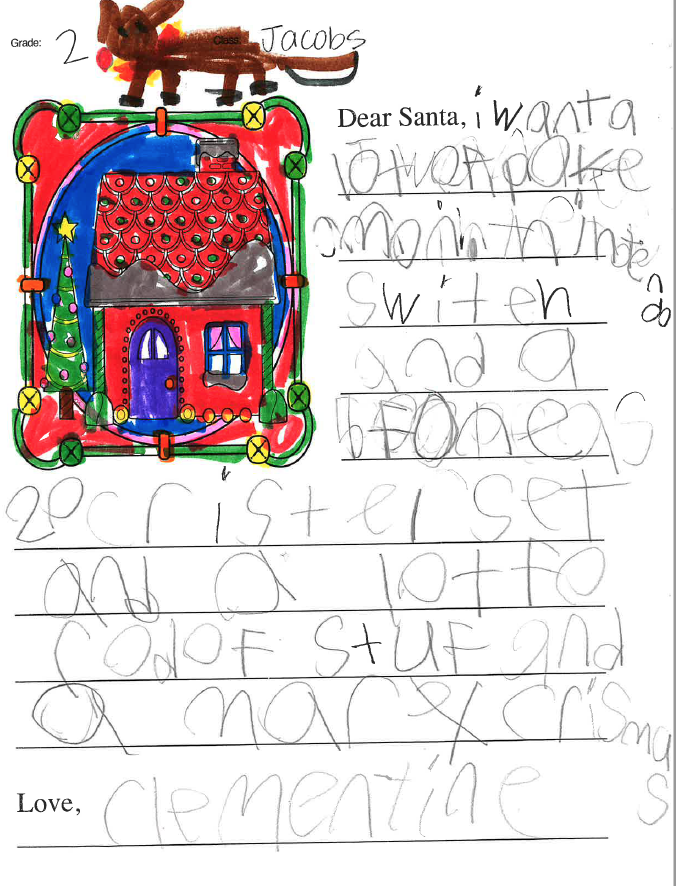 Grade: 2 Class: Jacobs
Dear Santa, i want a
lotvof poke
mon in the
switen and
and a
20 cristel set
and a lot fo
codof stuf and
a mary crismas
Love, Clementine